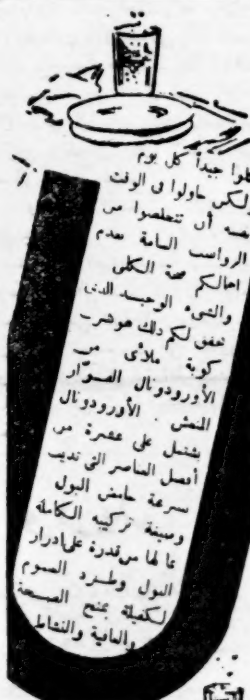 كلوا جيداً كل يوم
لكن حاولوا فى الوقت
نفسه أن تتخلصوا من
الرواسب السامة بعدم
اهمالكم صحة الكلى
والشىء الوحيد الذى
يحقق لكم ذلك هو شرب
كوبة ملأى من
الأورودونال الفوّار
المنعش . الأورودونال
يشتمل على عشرة من
أفضل العناصر التى تذيب
بسرعة حامض البول
وصيغة تركيبه الكاملة
بما لها من قدرة على ادرار
البول وطرد السموم
لكفيلة بمنح الصحة
والعافية والنشاط